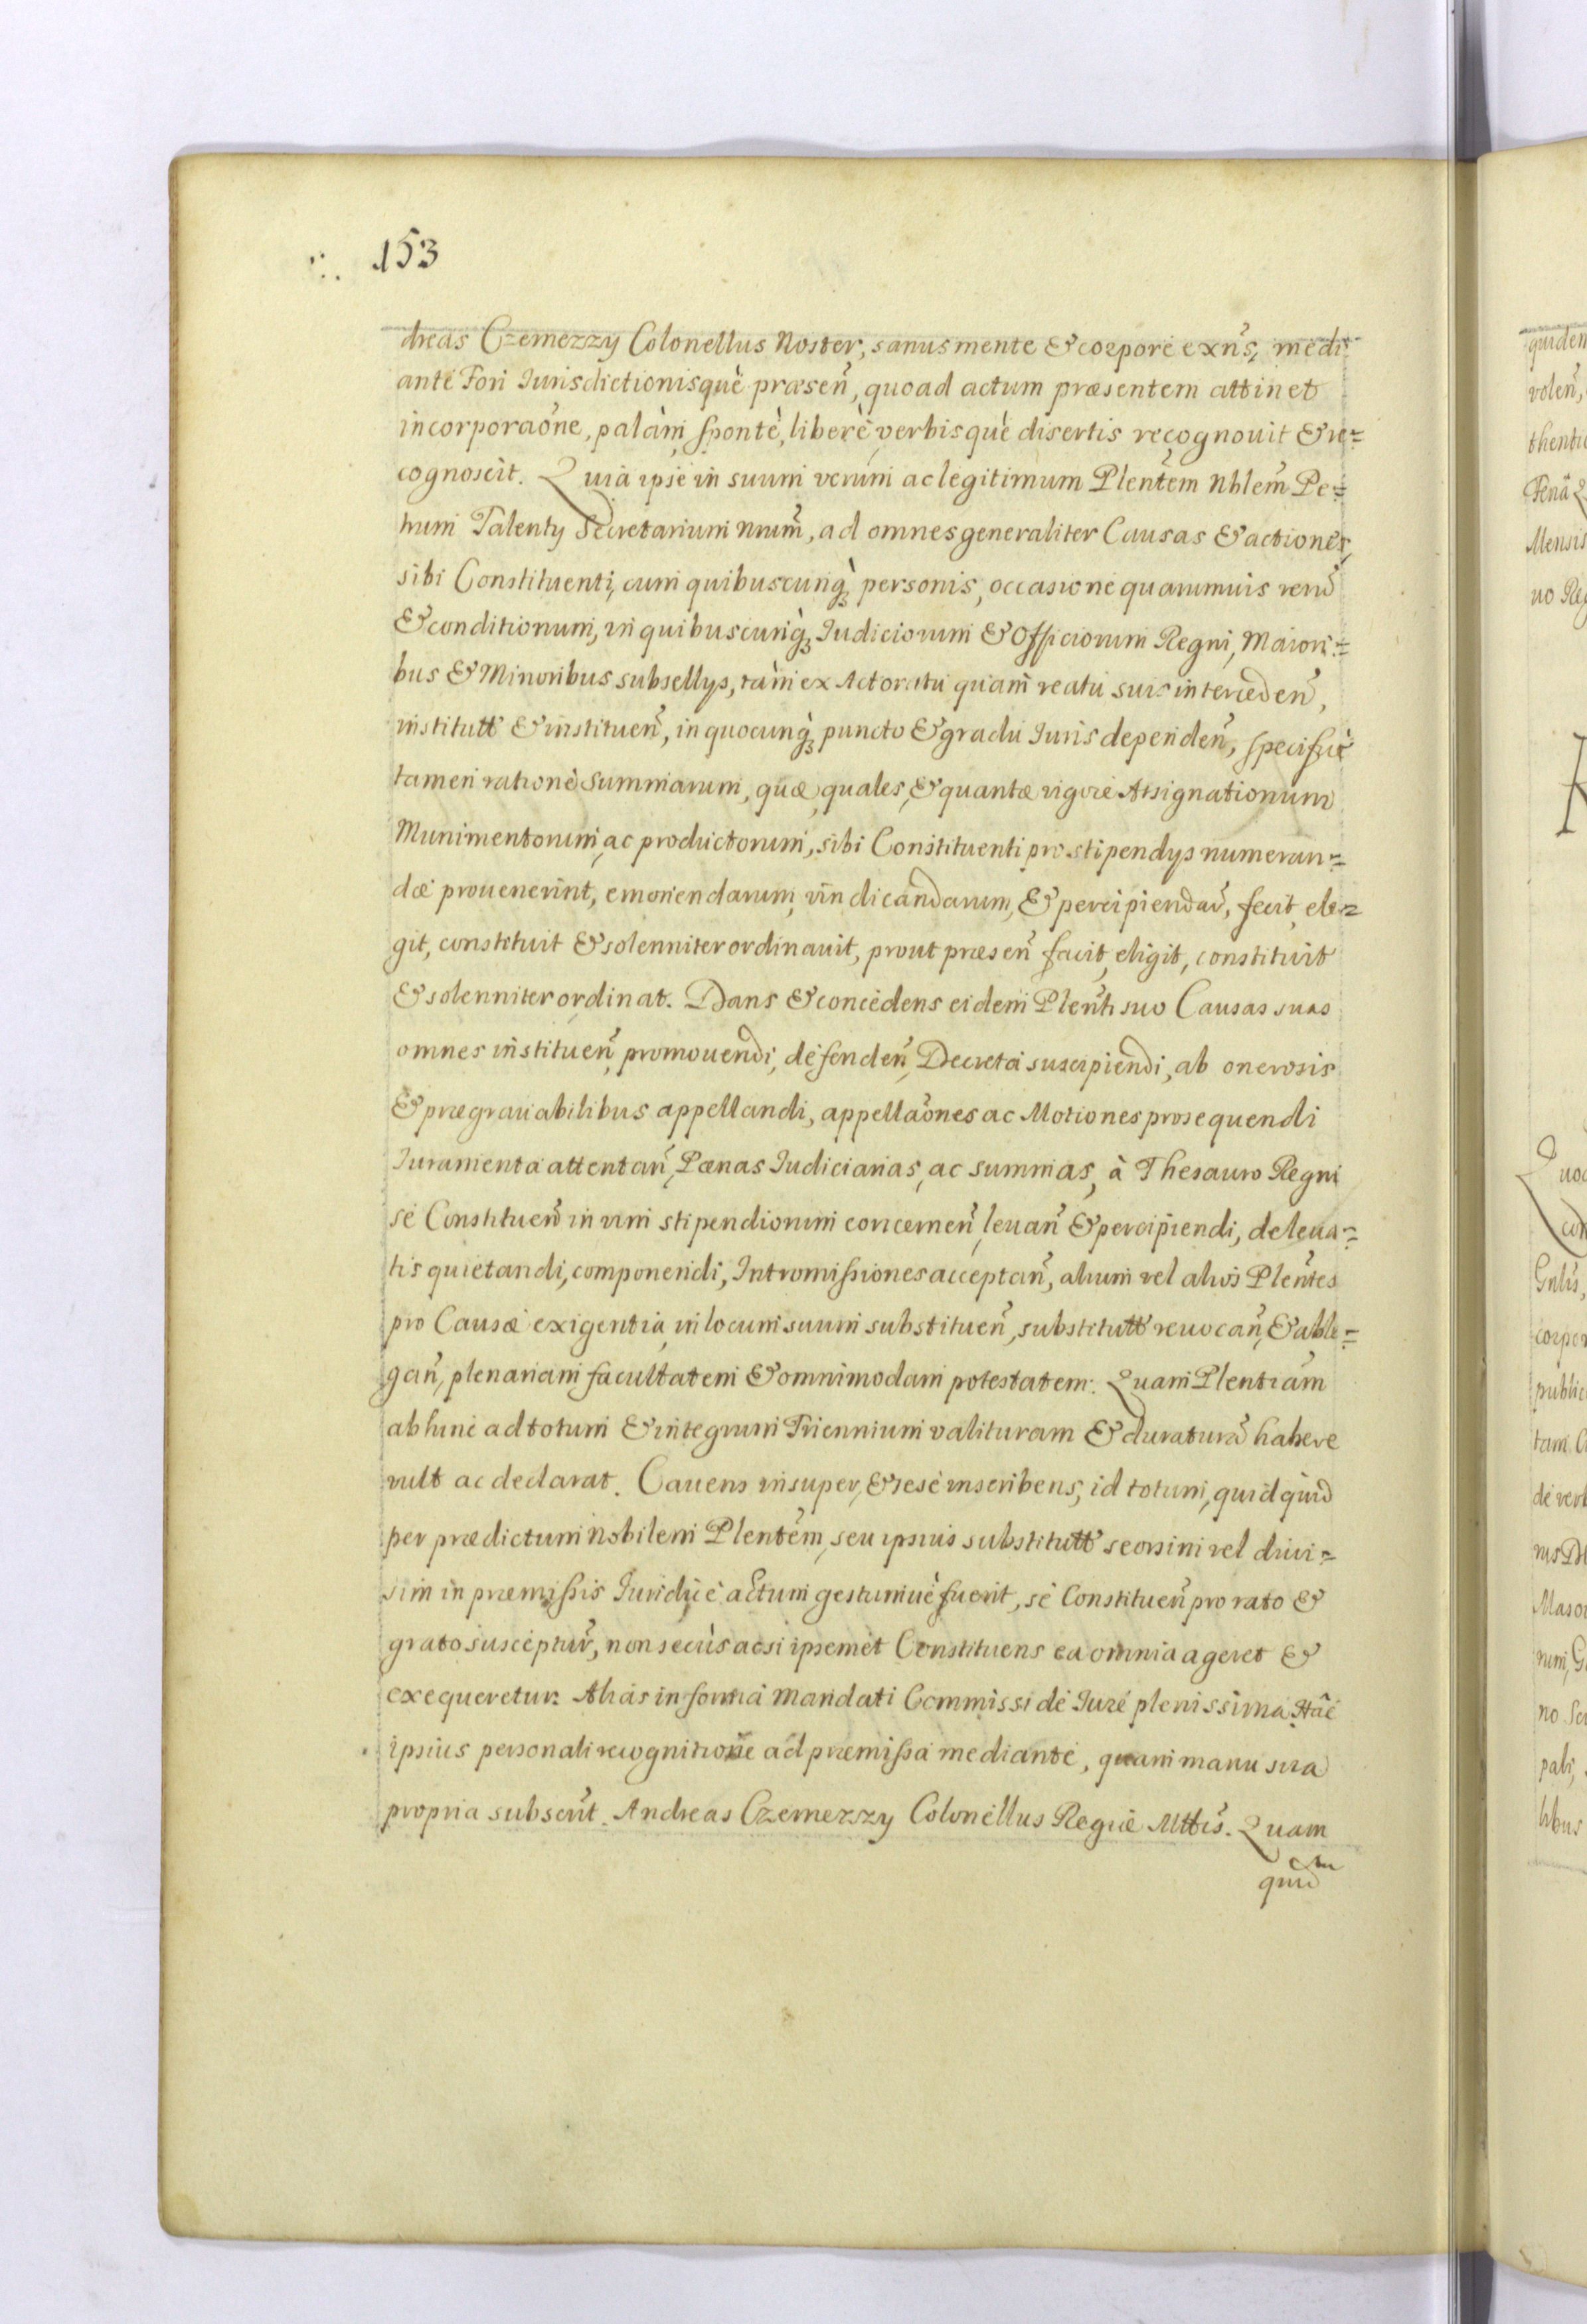 153
dreas Czemerzy Colonellus Noster, sanus mente & corpore exñs, medi
ante Fori Iurisdictionisquè præseñ, quoad actum præsentem attinet
incorporaõne, palàm, spontè, liberè, verbisquè disertis recognovit & re=
cognoscit. Quia ipse in suum verum ac legitimum Pleñtem Nblem̃ Pe=
trum Talenty Secretarium Nrum̃, ad omnes generaliter Causas & actiones
sibi Constituenti, cum quibuscunq̀ȝ personis, occasione quarumuis reru᷉
& conditionum, in quibuscunq̀ȝ Iudiciorum & Officiorum Regni, Maiori=
bus & Minoribus subsellys, tàm ex Actoratu quàm reatu suis intercedeñ,
institutt̃ & instituen̄, in quocunq̀ȝ puncto & gradu Iuris dependeñ, specificè
tamen ratione Summarum, quæ, quales, & quantæ vigore Assignationum
Munimentorum, ac productorum, sibi Constituenti pro stipendys numeran=
dæ prouenerint, emonendarum, vindicandarum, & percipiendar̃, fecit, ele=
git, constituit & solenniter ordinauit, prout præseñ facit, eligit, constituit
& solenniter ordinat. Dans & concedens eidem Pleñti suo Causas suas
omnes instituen̄, promouendi, defendeñ, Decreta suscipiendi, ab onerosis
& prægrauabilibus appellandi, appellaõnes ac Motiones prosequendi
Iuramenta attentañ, Pœnas Iudiciarias, ac summas, à Thesauro Regni
se Constitueñ in vim stipendiorum concerneñ, leuañ & percipiendi, de leua=
tis quietandi, componendi, Intromissiones acceptañ, alium vel alios Pleñtes
pro Causæ exigentia, in locum suum substitueñ, substitutt̃ reuocañ, & able=
gañ, plenariam facultatem & omnimodam potestatem. Quam Plentiam̃
ab hinc ad totum & integrum Triennium valituram & duratura᷉ habere
vult ac declarat. Cauens insuper, & sese inscribens, id totum, quidquid
per prædictum Nobilem Pleñtem, seu ipsius substitutt̃ seorsim vel diui=
sim in præmissis Iuridicè actum gestumuè fuerit, se Constitueñ pro rato &
grato susceptur̃, non secùs acsi ipsemet Constituens ea omnia ageret &
exequeretur. Alias in forma Mandati Commissi de Iure plenissima. Hac
ipsius personali recognitione ad præmissa mediante, quam manu sua
propria subscr̃t. Andreas Czemerszy Colonellus Regiæ Mttis̃. Quam
quid᷉m